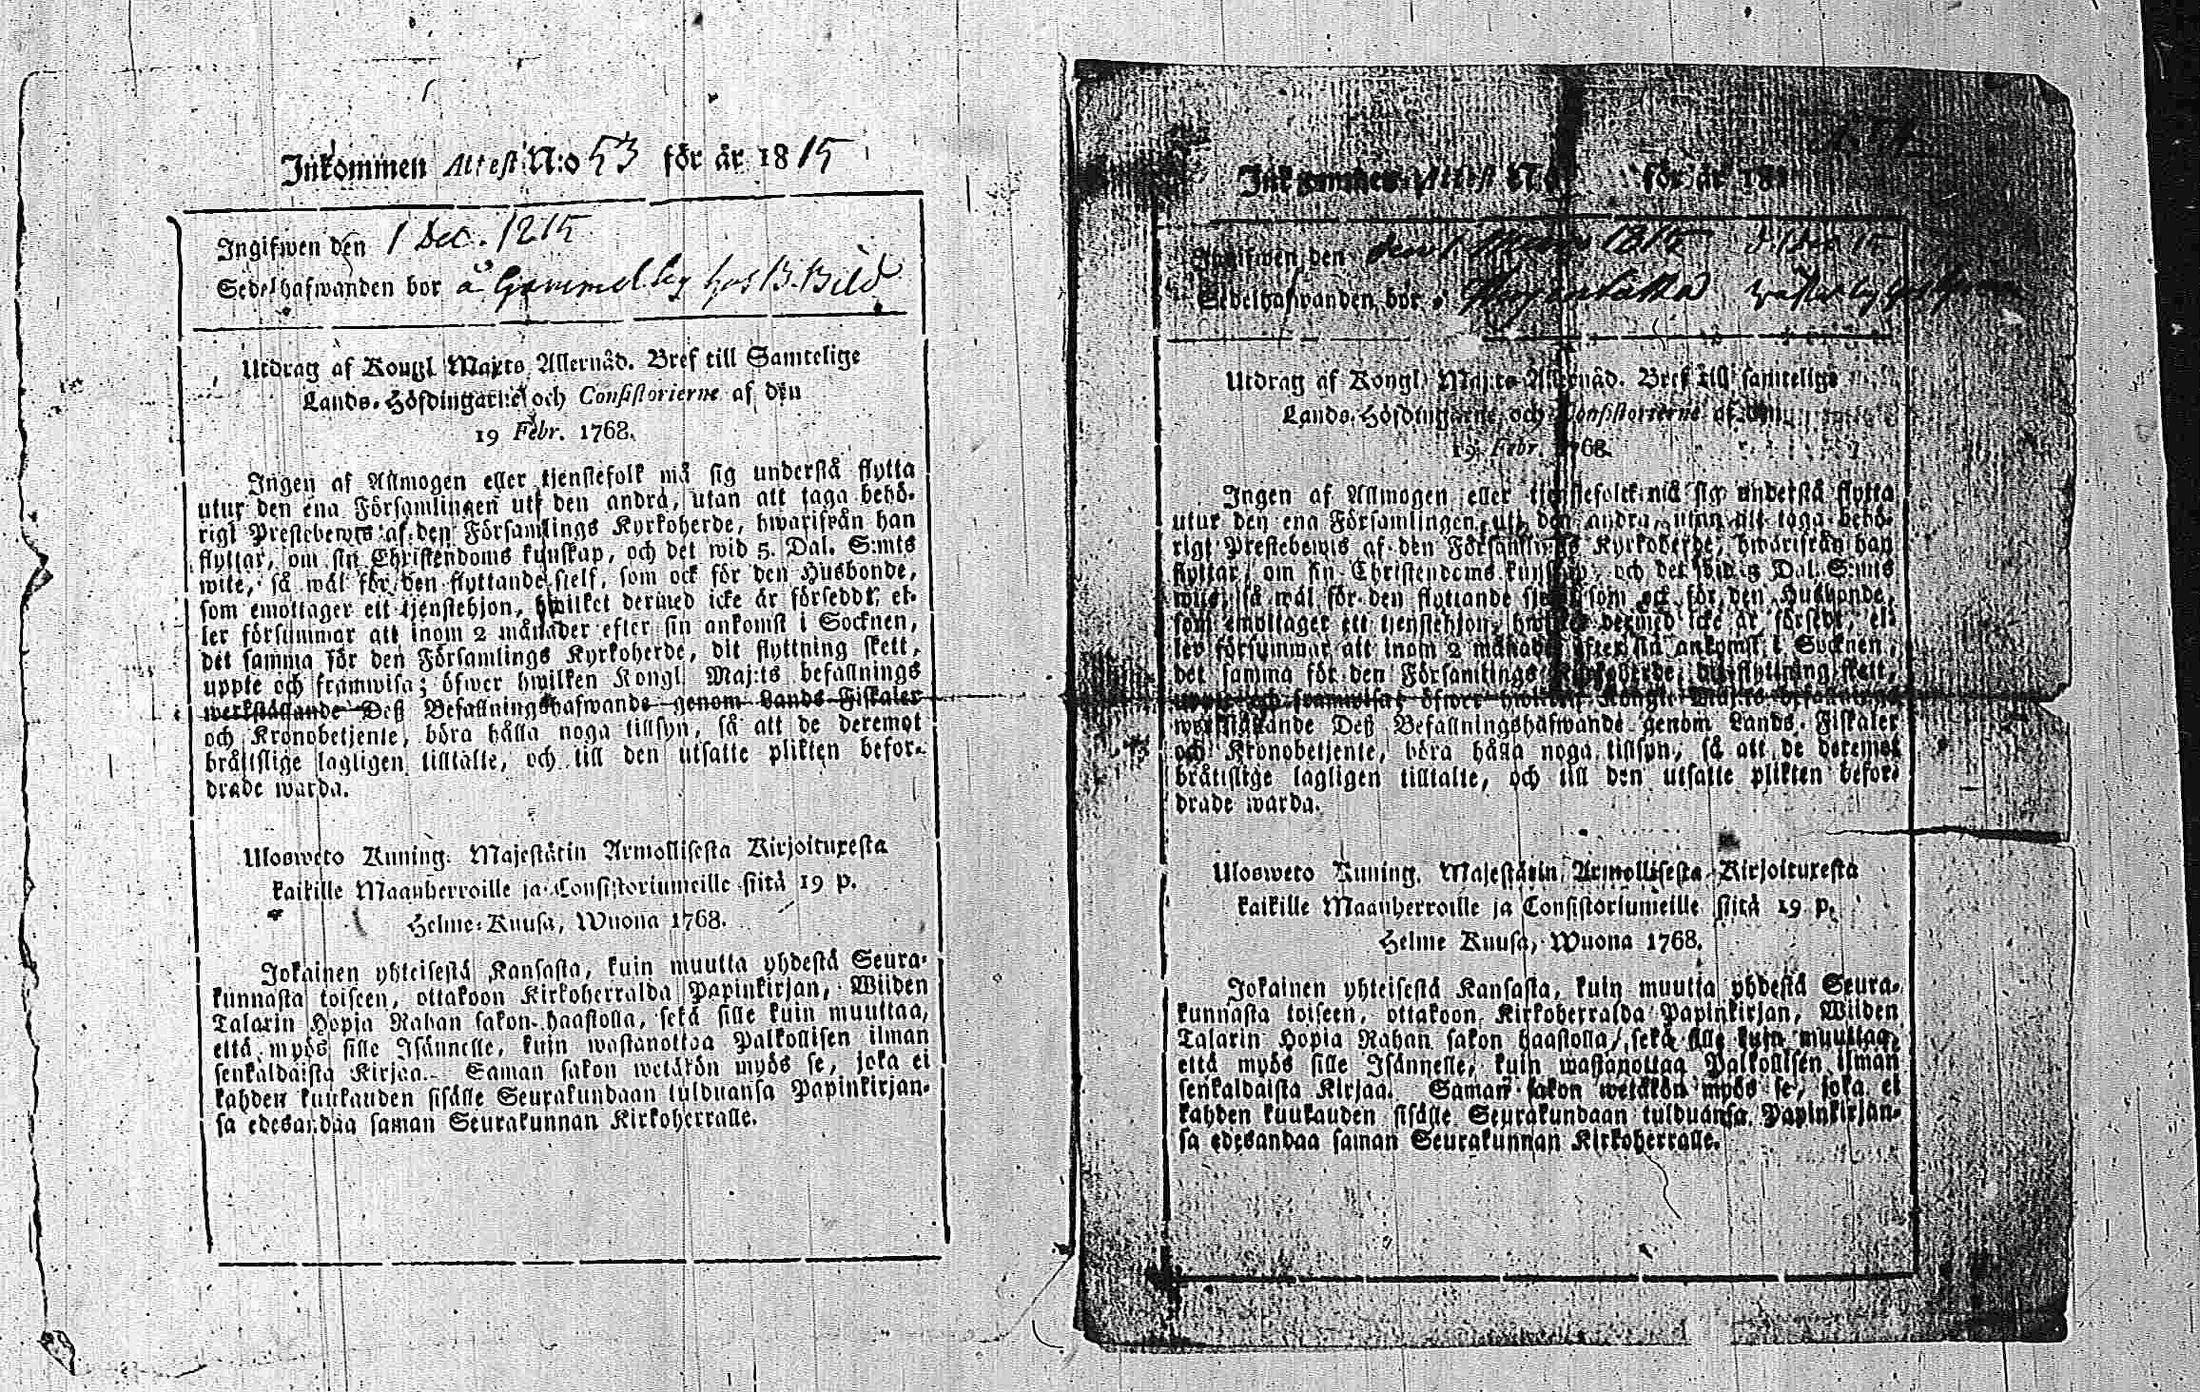 Inkommen Attest N:o 53 för år 1815
Ingifwen den 1 Dec. 1815
Sedelhafwanden bor å Gammelby hos B. Bild
Utdrag af Kongl Maj:ts Allernåd. Bref till Samtelige
Lands-Höfdingarne och Consistorierne af den
19 Febr. 1768.
Ingen af Allmogen eller tjenstefolk må sig understå flytta
utur den ena Församlingen uti den andra, utan att taga behö-
rigt Prestebewis af den Församlings Kyrkoherde, hwarifrån han
flyttar, om sin Christendoms kunskap, och det wid 5. Dal. S:mts
wite, så wäl för den flyttande sielf, som ock för den Husbonde,
som emottager ett tjenstehjon, hwilket dermed icke är försedt, el-
ler försummar att inom 2 månader efter sin ankomst i Socknen,
det samma för den Församlings Kyrkoherde, dit flyttning skett,
uppte och framwisa; öfwer hwilken Kongl Maj:ts befallnings
werkställande Deß Befallningshafwande genom Lands-Fiskaler
och Kronobetjente, böra hålla noga tillsyn, så att de deremot
bråttslige lagligen tilltalte, och till den utsatte plikten befor-
drade warda.
Ulosweto Kuning. Majestätin Armollisesta Kirjoituxesta
kaikille Maanherroille ja Consistoriumeille siitä 19 p.
Helme-Kuusa, Wuona 1768.
Jokainen yhteisestä Kansasta, kuin muutta yhdestä Seura-
kunnasta toiseen, ottakoon Kirkoherralda Papinkirjan, Wiiden
Talarin Hopia Rahan sakon haastolla, sekä sille kuin muuttaa,
että myös sille Isännelle, kuin wastanottaa Palkollisen ilman
senkaldaista Kirjaa. Saman sakon wetäkön myös se, joka ei
kahden kuukauden sisälle Seurakundaan tulduansa Papinkirjan-
sa edesandaa saman Seurakunnan Kirkoherralle.
Inkommen Attest N:o för år 181
Ingifwen den 1815
Sedelhafwanden bor
Utdrag af Kongl. Maj:ts Allernåd. Bref till samtelige
Lands-Höfdingarne och Consistorierne af den
19 Febr. 1768.
Ingen af Allmogen eller tjenstefolck må sig understå flytta
utur den ena Församlingen uti den andra, utan att taga behö-
rigt Prestebewis af den Församlings Kyrkoherde, hwarifrån han
flyttar, om sin Christendoms kunskap, och det wid 5 Dal. S:mts
wite, så wäl för den flyttande sielf, som ock för den Husbonde,
som emottager ett tjenstehjon, hwilket dermed icke är försedt, el-
ler försummar att inom 2 månader efter sin ankomst i Socknen,
det samma för den Församlings Kyrkoherde, dit flyttning skett,
uppte och framwisa; öfwer hwilken Kongl. Maj:ts befallnings
werkställande Deß Befallningshafwande genom Lands-Fiskaler
och Kronobetjente, böra hålla noga tillsyn, så att de deremot
bråttslige lagligen tilltalte, och till den utsatte plikten befor-
drade warda.
Ulosweto Kuning. Majestätin Armollisesta Kirjoituxesta
kaikille Maanherroille ja Consistoriumeille siitä 19 p.
Helme Kuusa, Wuona 1768.
Jokainen yhteisestä Kansasta, kuin muutta yhdestä Seura-
kunnasta toiseen, ottakoon Kirkoherralda Papinkirjan, Wiiden
Talarin Hopia Rahan sakon haastolla, sekä sille kuin muuttaa,
että myös sille Isännelle, kuin wastanottaa Palkollisen ilman
senkaldaista Kirjaa. Saman sakon wetäkön myös se, joka ei
kahden kuukauden sisälle Seurakundaan tulduansa Papinkirjan-
sa edesandaa saman Seurakunnan Kirkoherralle.